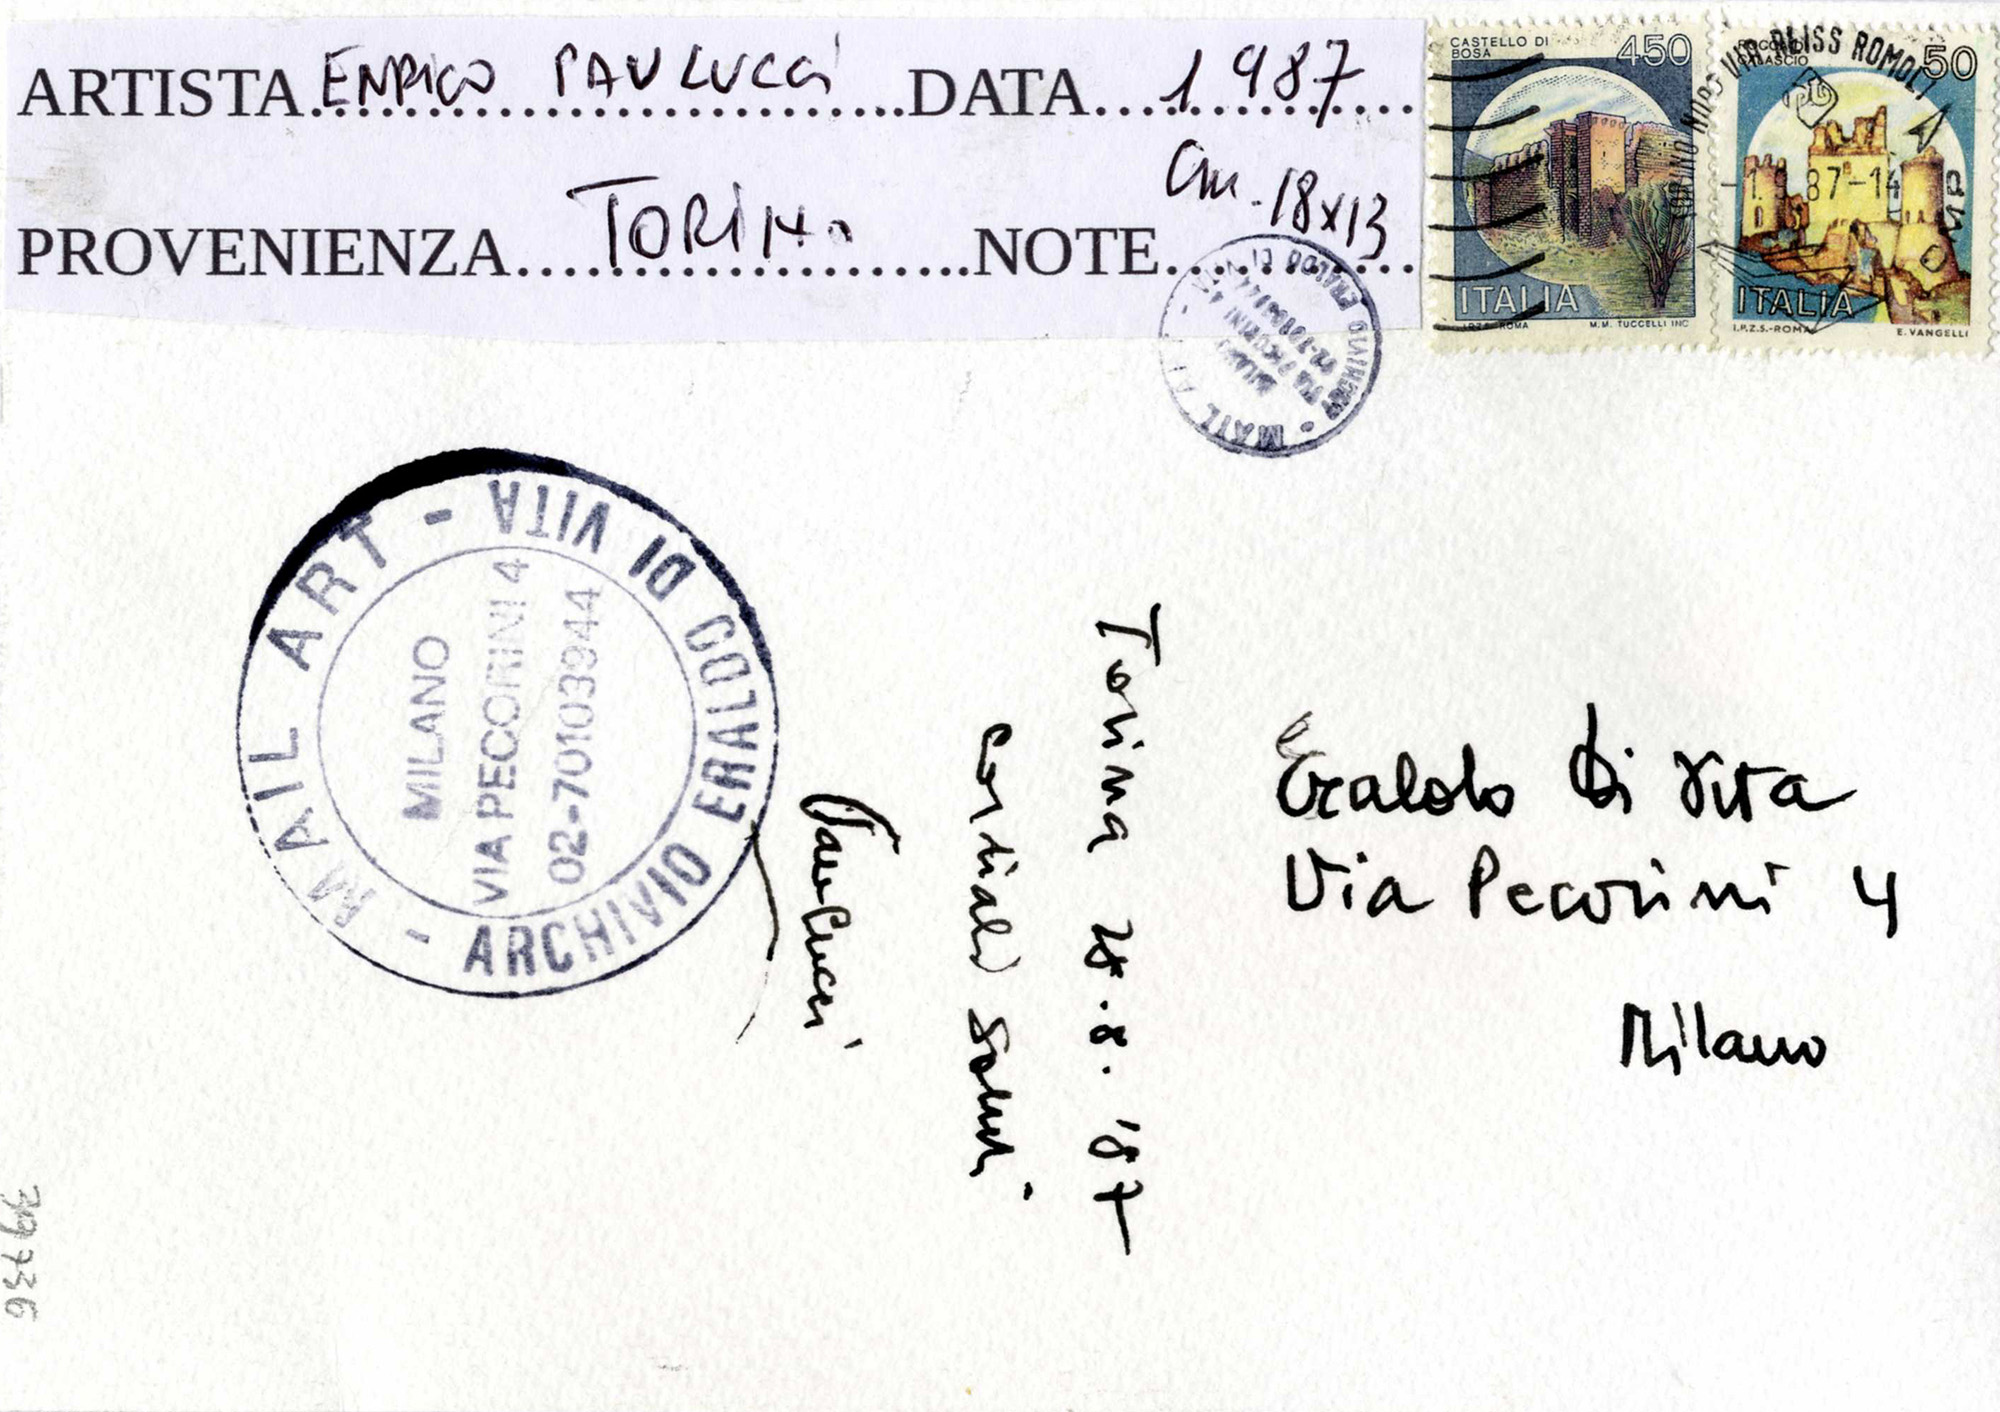 ARTISTA ENRICO PAULUCCI DATA 1987
PROVENIENZA TORINO NOTE cm. 18x13
CASTELLO DI
BOSA
450
ITALIA
I.P.Z.S. ROMA
M.M. TUCCELLI INC
ROCCA DI
CALASCIO
50
ITALIA
I.P.Z.S.-ROMA
E. VANGELLI
TORINO
87-14
MAIL ART - ARCHIVIO ERALDO DI VITA -
MILANO
VIA PECORINI 4
02-70103944
- MAIL ART -
ARCHIVIO ERALDO DI VITA
MILANO
VIA PECORINI 4
02-70103944
Torino 28.8.'87
cordiali saluti
Paulucci
Eraldo Di Vita
Via Pecorini 4
Milano